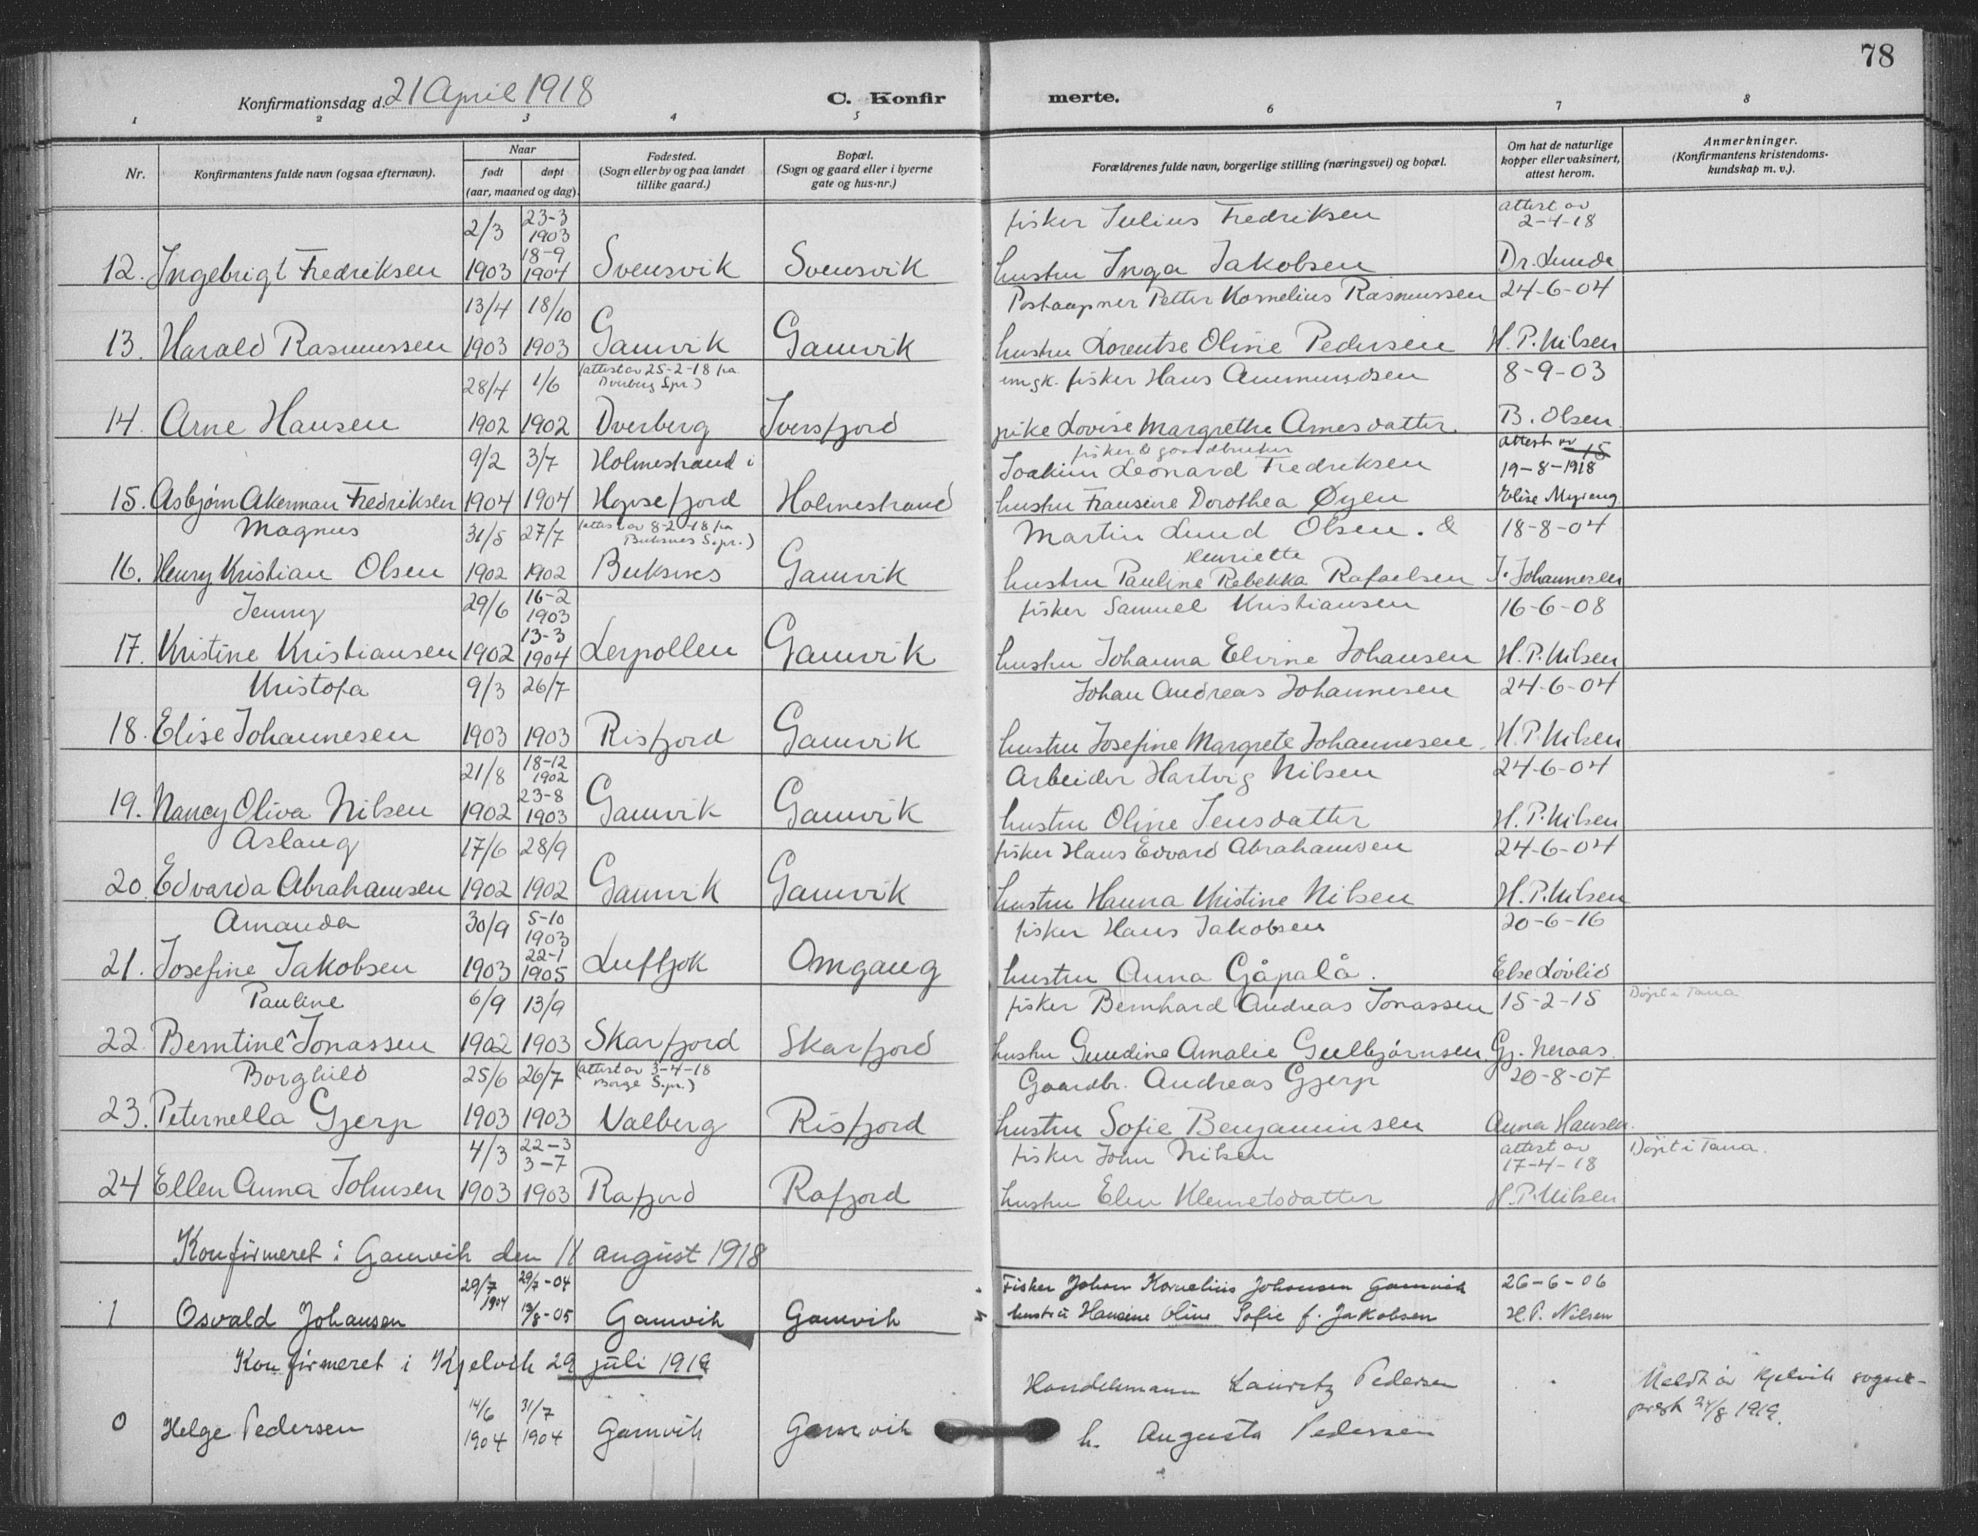 78
Konfirmationsdag d. 21 April 1918
C. Konfir merte.
1 2 3 4 5 6 7 8
Nr.
Konfirmantens fulde navn (ogsaa efternavn).
Naar
født døpt
(aar, maaned og dag)
Fødested.
(Sogn eller by og paa landet
tillike gaard.)
Bopæl.
(Sogn og gaard eller i byerne
gate og hus-nr.)
Forældrenes fulde navn, borgerlige stilling (næringsvei) og bopæl.
Om hat de naturlige
kopper eller vaksinert,
attest herom.
Anmerkninger.
(Konfirmantens kristendoms-
kundskap m. v.).
2/3 23-3 1903 fisker Julius Fredriksen attest av 2-4-18
12. Ingebrigt Fredriksen 1903 18-9 1904 Svensvik Svensvik hustru Inga Jakobsen Dr. Lunde
13/4 18/10 Postaapner Petter Kornelius Rasmussen 24-6-04
13. Harald Rasmussen 1903 1903 Gamvik Gamvik hustru Lorentse Oline Pedersen H. P. Nilsen
28/4 1/6 (attest av 25-2-18 fra Dverberg Spr.) ungk. fisker Hans Ammundsen 8-9-03
14. Arne Hansen 1902 1902 Dverberg Iversfjord pike Lovise Margrethe Arnesdatter. B. Olsen
9/2 3/7 Holmestrand i fisker & gaardbruker Joakim Leonard Fredriksen attest av 15 19-8-1918
15. Asbjørn Akerman Fredriksen 1904 1904 Hopsefjord Holmestrand hustru Fransine Dorothea Øyen Elise Myreng
Magnus 31/5 27/7 (attest av 8-2-18 fra Buksnes S.pr.) Martin Lund Olsen. & 18-8-04
16. Henry Kristian Olsen 1902 1902 Buksnes Gamvik hustru Pauline Henriette Rebekka Rafaelsen J. Johannesen
Jenny 29/6 16-2 1903 fisker Samuel Kristiansen 16-6-08
17. Kristine Kristiansen 1902 13-3 1904 Lerpollen Gamvik hustru Johanna Elvine Johansen H. P. Nilsen
Kristofa 9/3 26/7 Johan Andreas Johannesen 24-6-04
18. Elise Johannesen 1903 1903 Risfjord Gamvik hustru Josefine Margrete Johannesen. H. P. Nilsen
21/8 18-12 1902 Arbeider Hartvig Nilsen 24-6-04
19. Nancy Oliva Nilsen 1902 23-8 1903 Gamvik Gamvik hustru Oline Jensdatter H. P. Nilsen
Aslaug 17/6 28/9 fisker Hans Edvard Abrahamsen 24-6-04
20. Edvarda Abrahamsen 1902 1902 Gamvik Gamvik hustru Hanna Kristine Nilsen H. P. Nilsen
Amanda 30/9 5-10 1903 fisker Hans Jakobsen 20-6-16
21. Josefine Jakobsen 1903 22-1 1905 Luftjok Omgang hustru Anna Gåpalå. Else Løvlid
Pauline 6/9 13/9 fisker Bernhard Andreas Jonassen 15-2-15 Døpt i Tana
22. Berntine ^ Jonassen 1902 1903 Skarfjord Skarfjord hustru Gundine Amalie Gulbjørnsen. Gj. Neraas.
Borghild 25/6 26/7 (attest av 3-4-18 Borge S.pr.) Gaardbr. Andreas Gjerp 20-8-07
23. Peternella Gjerp 1903 1903 Valberg Risfjord hustru Sofie Benjaminsen Anna Hansen.
4/3 22-3 3-7 fisker John Nilsen attest av 17-4-18 Døpt i Tana.
24 Ellen Anna Johnsen 1903 1903 Rafjord Rafjord hustru Elen Klemetsdatter H. P. Nilsen
Konfirmeret i Gamvik den 11 august 1918
29/7 1904 29/7-04 Fisker Johan Kornelius Johansen Gamvik 26-6-06
1 Osvald Johansen 13/8-05 Gamvik Gamvik hustru Hansine Oline Sofie f. Jakobsen H. P. Nilsen
Konfirmeret i Kjelvik 29 juli 1919
14/6 31/7 Handelsmann Lauritz Pedersen Meldt av Kjelvik sogne-
0 Helge Pedersen 1904 1904 Gamvik Gamvik h. Augusta Pedersen prest 24/8 1919.